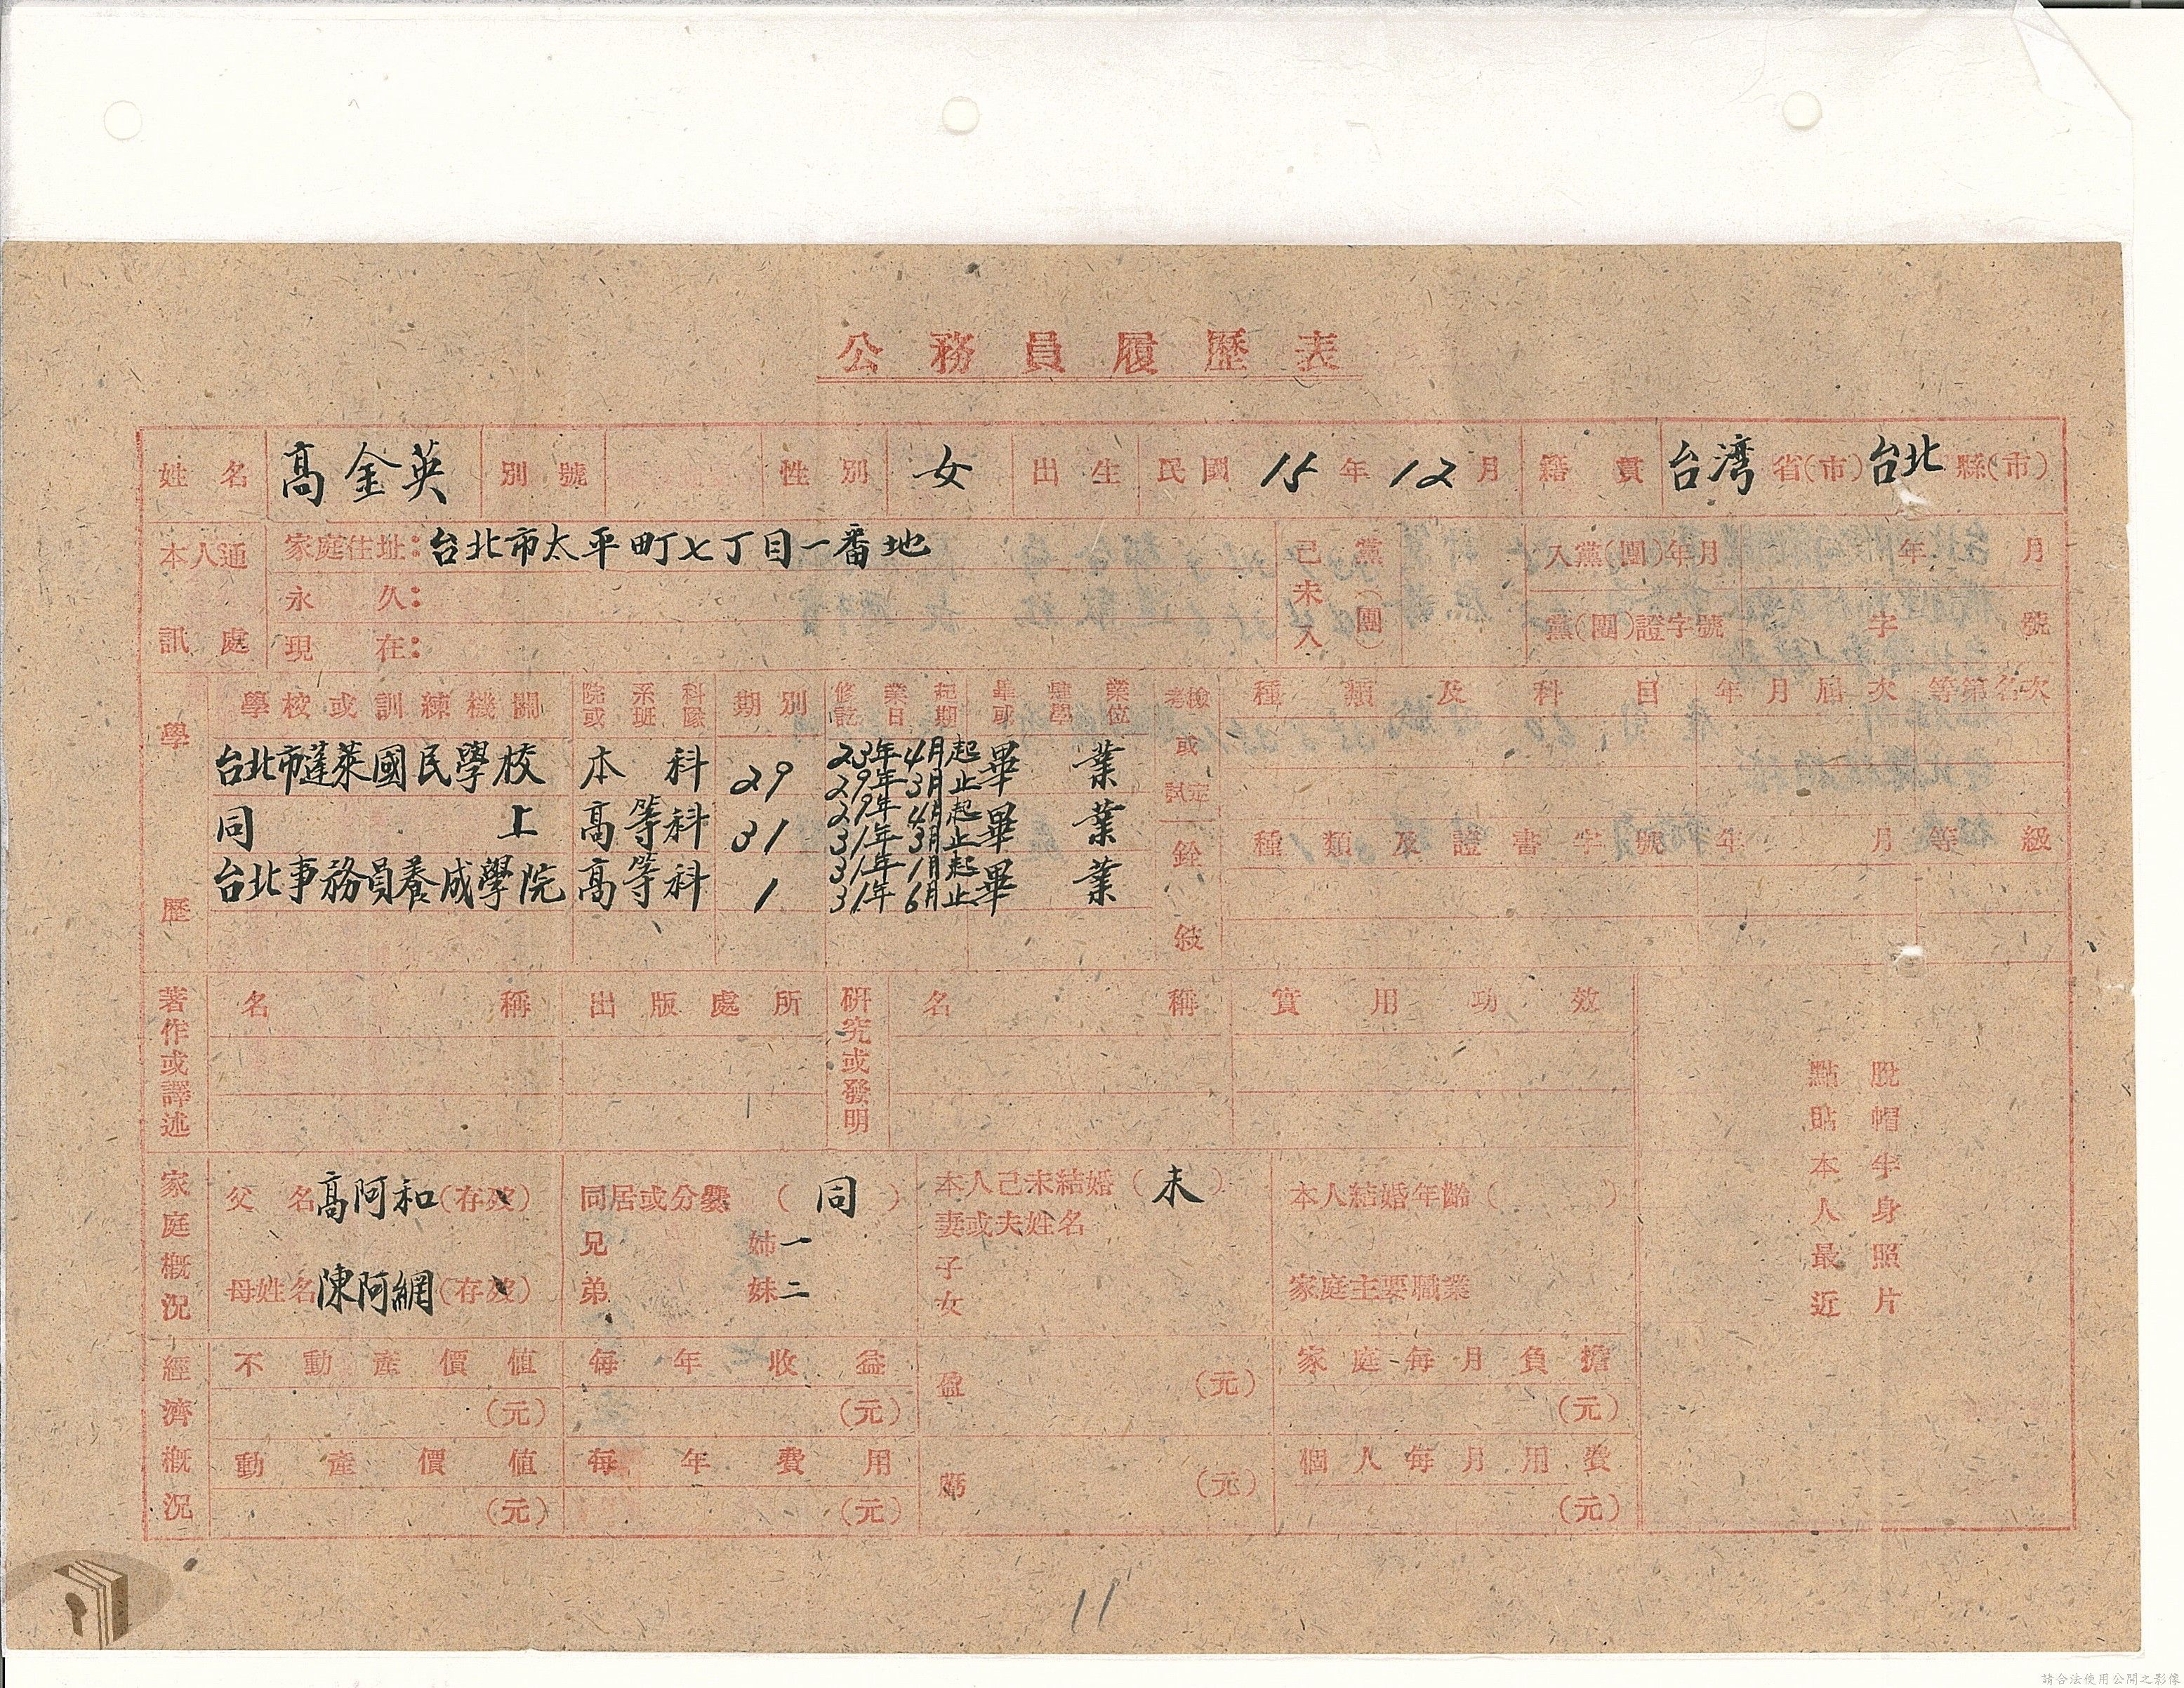 公務員履歷表
姓名 高金英 別號 性別 女 出生 民國 15年12月 籍貫 台湾省(市)台北縣(市)
本人通訊處
家庭住址:台北市太平町七丁目一番地
永久:
現在:
已未入黨(團)
入黨(團)年月 年 月
黨(團)證字號 字 號
學歷
學校或訓練機關 院系科或班隊 期別 修業起訖日期 畢肄業或學位
台北市蓬萊國民學校 本科 29 23年4月起 29年3月止 畢業
同上 高等科 31 29年4月起 31年3月止 畢業
台北事務員養成學院 高等科 1 31年1月起 31年6月止 畢業
考檢或試定
種類及科目 年月屆次 等第名次
銓敘
種類及證書字號 年月 等級
著作或譯述
名稱 出版處所
研究或發明
名稱 實用功效
家庭概況
父名高阿和(存歿) 同居或分爨(同) 本人已未結婚(未) 本人結婚年齡( )
妻或夫姓名
兄 姉一
母姓名陳阿網(存歿) 弟 妹二 子女 家庭主要職業
脫帽半身照片
點貼本人最近
經濟概況
不動產價值 每年收益 盈 (元) 家庭每月負擔
(元) (元) (元)
動產價值 每年費用 虧 (元) 個人每月用費
(元) (元) (元)
11
請合法使用公開之影像